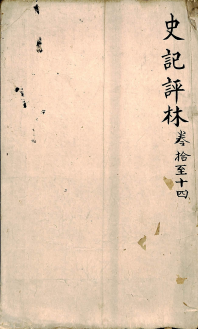 史記評林 巻拾至十四